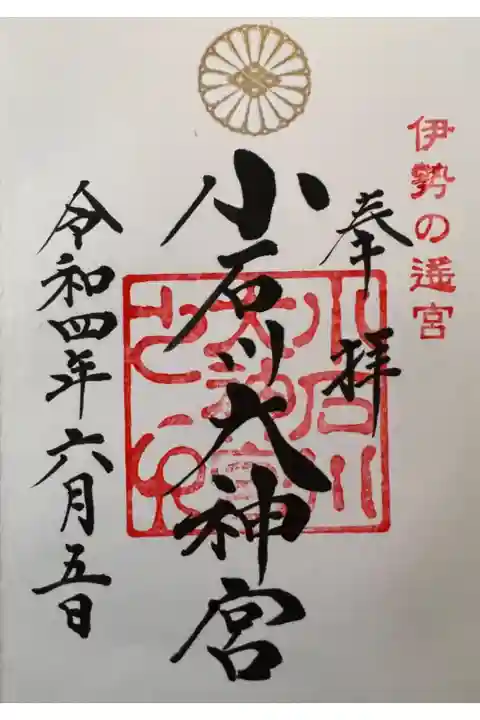 伊勢の遥宮
奉拝
小石川大神宮
小石川
大神宮
令和四年六月五日